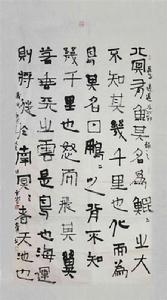 北冥有魚其名爲鯤〻之大
不知其幾千里也化而爲
鳥其名曰鵬〻之背不知
其幾千里也怒而飛其翼
若垂天之雲是鳥也海運
則將徙於南冥〻者天池也